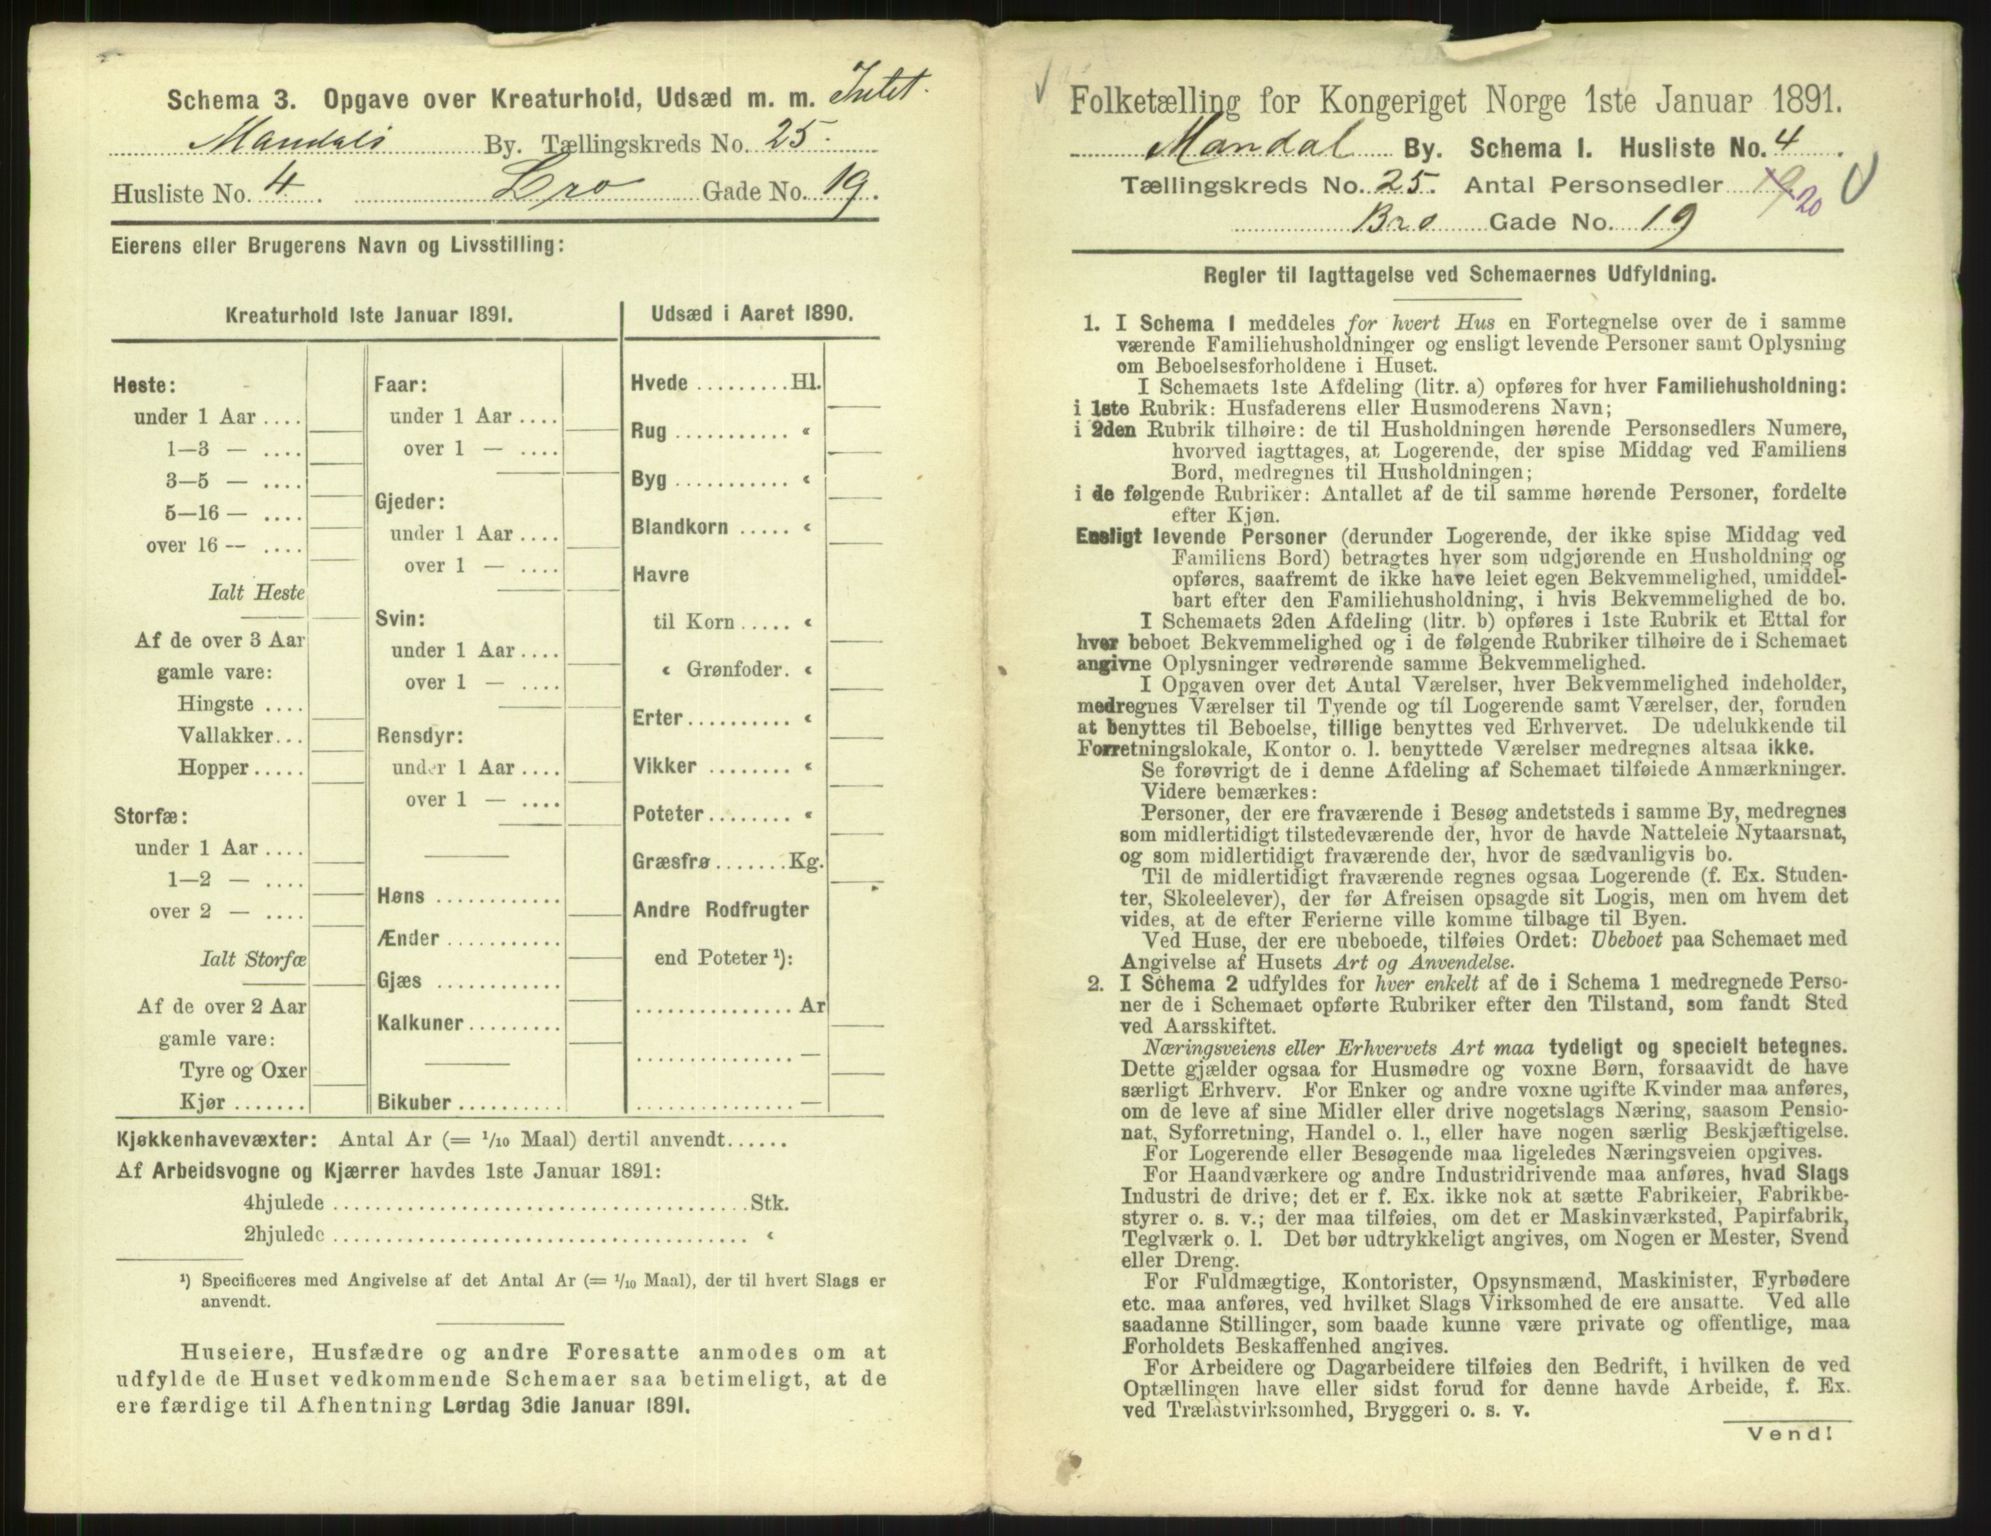 Schema 3. Opgave over Kreaturhold, Udsæd m. m. Intet.
Mandals By. Tællingskreds No. 25.
Husliste No. 4. Bro Gade No. 19.
Eierens eller Brugerens Navn og Livsstilling:
Kreaturhold 1ste Januar 1891.
Heste:
under 1 Aar ....
1—3 — ....
3—5 — ....
5—16 — ....
over 16 — ....
Ialt Heste
Af de over 3 Aar
gamle vare:
Hingste ....
Vallakker...
Hopper.....
Storfæ:
under 1 Aar ....
1—2 — ....
over 2 — ....
Ialt Storfæ
Af de over 2 Aar
gamle vare:
Tyre og Oxer
Kjør .......
Faar:
under 1 Aar ....
over 1 — ....
Gjeder:
under 1 Aar ....
over 1 — ....
Svin:
under 1 Aar ....
over 1 — ....
Rensdyr:
under 1 Aar ....
over 1 — ....
Høns ............
Ænder ...........
Gjæs ............
Kalkuner.........
Bikuber..........
Udsæd i Aaret 1890.
Hvede .........Hl.
Rug ........... «
Byg ........... «
Blandkorn ..... «
Havre
til Korn ..... «
« Grønfoder. «
Erter.......... «
Vikker ........ «
Poteter........ «
Græsfrø.......Kg.
Andre Rodfrugter
end Poteter ¹):
...............Ar
...............—
...............—
Kjøkkenhavevæxter: Antal Ar (= 1/10 Maal) dertil anvendt......
Af Arbeidsvogne og Kjærrer havdes 1ste Januar 1891:
4hjulede ........................................Stk.
2hjulede ........................................ «
¹) Specificeres med Angivelse af det Antal Ar (= 1/10 Maal), der til hvert Slags er
anvendt.
Huseiere, Husfædre og andre Foresatte anmodes om at
udfylde de Huset vedkommende Schemaer saa betimeligt, at de
ere færdige til Afhentning Lørdag 3die Januar 1891.
Folketælling for Kongeriget Norge 1ste Januar 1891.
Mandal By. Schema I. Husliste No. 4.
Tællingskreds No. 25. Antal Personsedler 19. 20
Bro Gade No. 19
Regler til Iagttagelse ved Schemaernes Udfyldning.
1. I Schema 1 meddeles for hvert Hus en Fortegnelse over de i samme
værende Familiehusholdninger og ensligt levende Personer samt Oplysning
om Beboelsesforholdene i Huset.
I Schemaets 1ste Afdeling (litr. a) opføres for hver Familiehusholdning:
i 1ste Rubrik: Husfaderens eller Husmoderens Navn;
i 2den Rubrik tilhøire: de til Husholdningen hørende Personsedlers Numere,
hvorved iagttages, at Logerende, der spise Middag ved Familiens
Bord, medregnes til Husholdningen;
i de følgende Rubriker: Antallet af de til samme hørende Personer, fordelte
efter Kjøn.
Ensligt levende Personer (derunder Logerende, der ikke spise Middag ved
Familiens Bord) betragtes hver som udgjørende en Husholdning og
opføres, saafremt de ikke have leiet egen Bekvemmelighed, umiddel-
bart efter den Familiehusholdning, i hvis Bekvemmelighed de bo.
I Schemaets 2den Afdeling (litr. b) opføres i 1ste Rubrik et Ettal for
hver beboet Bekvemmelighed og i de følgende Rubriker tilhøire de i Schemaet
angivne Oplysninger vedrørende samme Bekvemmelighed.
I Opgaven over det Antal Værelser, hver Bekvemmelighed indeholder,
medregnes Værelser til Tyende og til Logerende samt Værelser, der, foruden
at benyttes til Beboelse, tillige benyttes ved Erhvervet. De udelukkende til
Forretningslokale, Kontor o. l. benyttede Værelser medregnes altsaa ikke.
Se forøvrigt de i denne Afdeling af Schemaet tilføiede Anmærkninger.
Videre bemærkes:
Personer, der ere fraværende i Besøg andetsteds i samme By, medregnes
som midlertidigt tilstedeværende der, hvor de havde Natteleie Nytaarsnat,
og som midlertidigt fraværende der, hvor de sædvanligvis bo.
Til de midlertidigt fraværende regnes ogsaa Logerende (f. Ex. Studen-
ter, Skoleelever), der før Afreisen opsagde sit Logis, men om hvem det
vides, at de efter Ferierne ville komme tilbage til Byen.
Ved Huse, der ere ubeboede, tilføies Ordet: Ubeboet paa Schemaet med
Angivelse af Husets Art og Anvendelse.
2. I Schema 2 udfyldes for hver enkelt af de i Schema 1 medregnede Perso-
ner de i Schemaet opførte Rubriker efter den Tilstand, som fandt Sted
ved Aarsskiftet.
Næringsveiens eller Erhvervets Art maa tydeligt og specielt betegnes.
Dette gjælder ogsaa for Husmødre og voxne Børn, forsaavidt de have
særligt Erhverv. For Enker og andre voxne ugifte Kvinder maa anføres,
om de leve af sine Midler eller drive nogetslags Næring, saasom Pensio-
nat, Syforretning, Handel o. l., eller have nogen særlig Beskjæftigelse.
For Logerende eller Besøgende maa ligeledes Næringsveien opgives.
For Haandværkere og andre Industridrivende maa anføres, hvad Slags
Industri de drive; det er f. Ex. ikke nok at sætte Fabrikeier, Fabrikbe-
styrer o. s. v.; der maa tilføies, om det er Maskinværksted, Papirfabrik,
Teglværk o. l. Det bør udtrykkeligt angives, om Nogen er Mester, Svend
eller Dreng.
For Fuldmægtige, Kontorister, Opsynsmænd, Maskinister, Fyrbødere
etc. maa anføres, ved hvilket Slags Virksomhed de ere ansatte. Ved alle
saadanne Stillinger, som baade kunne være private og offentlige, maa
Forholdets Beskaffenhed angives.
For Arbeidere og Dagarbeidere tilføies den Bedrift, i hvilken de ved
Optællingen have eller sidst forud for denne havde Arbeide, f. Ex.
ved Trælastvirksomhed, Bryggeri o. s. v.
Vend!